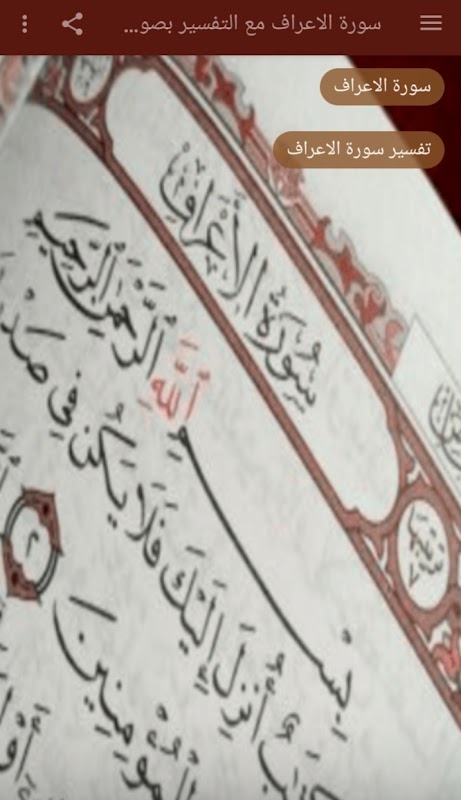 سورة الاعراف مع التفسير بصو...
سورة الاعراف
تفسير سورة الاعراف
سُورَةُ الْأَعْرَافِ
بِسْمِ اللَّهِ الرَّحْمَنِ الرَّحِيمِ
أُنْزِلَ إِلَيْكَ فَلَا يَكُنْ فِي
الْمُؤْمِنِينَ